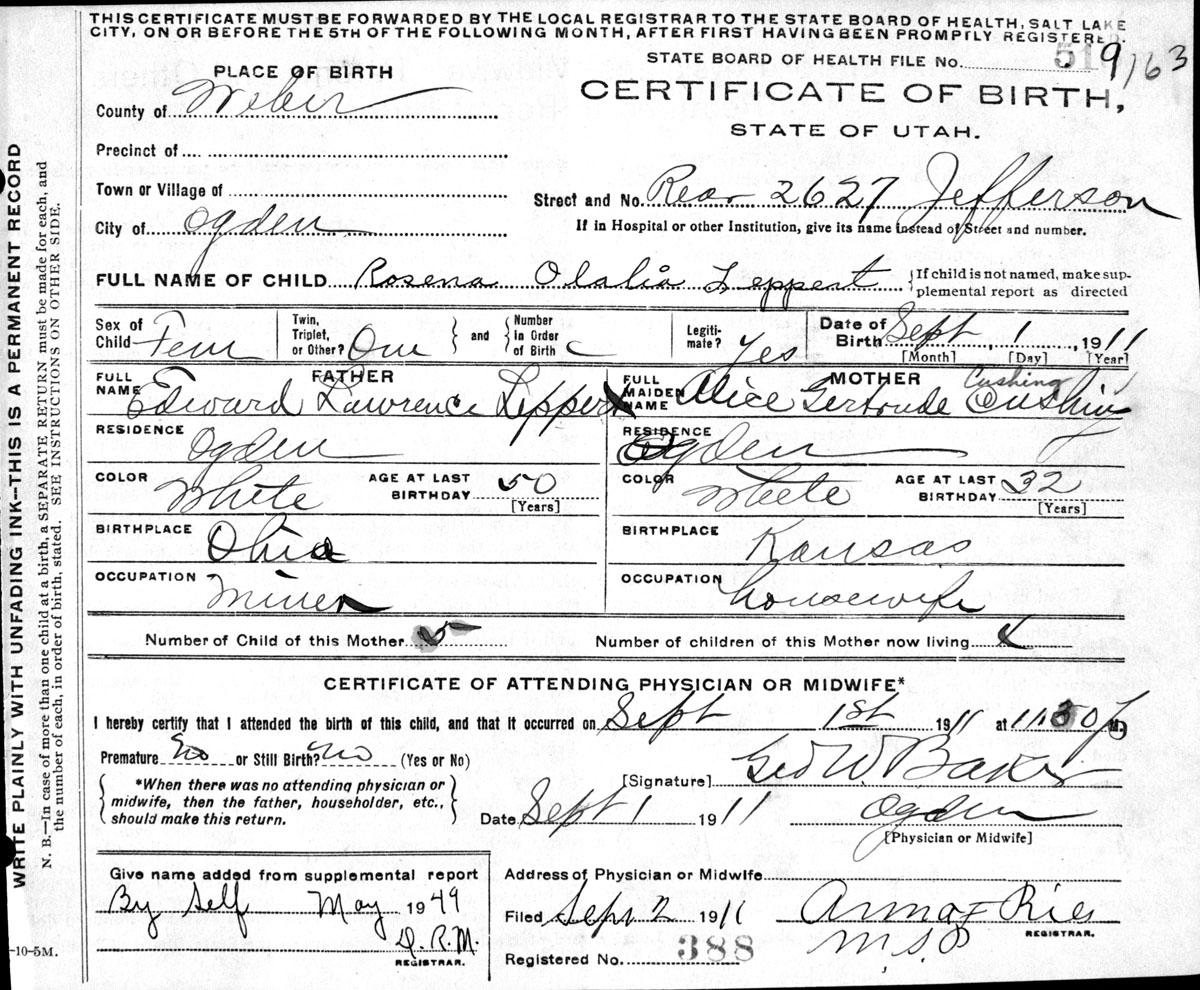 THIS CERTIFICATE MUST BE FORWARDED BY THE LOCAL REGISTRAR TO THE STATE BOARD OF HEALTH, SALT LAKE
CITY, ON OR BEFORE THE 5TH OF THE FOLLOWING MONTH, AFTER FIRST HAVING BEEN PROMPTLY REGISTERED.
STATE BOARD OF HEALTH FILE No. 9163
PLACE OF BIRTH
CERTIFICATE OF BIRTH,
STATE OF UTAH.
County of Weber
Precinct of
Town or Village of
City of Ogden
Street and No. Rear 2627 Jefferson
If in Hospital or other Institution, give its name instead of Street and number.
FULL NAME OF CHILD Rosena Olalia Leppert
{If child is not named, make sup-
plemental report as directed
Sex of Child Fem
Twin, Triplet, or Other? One
and
Number in Order of Birth
Legiti-mate? Yes
Date of Birth Sept 1, 1911
[Month] [Day] [Year]
FATHER
FULL NAME Edward Lawrence Leppert
RESIDENCE Ogden
COLOR White
AGE AT LAST BIRTHDAY 50
[Years]
BIRTHPLACE Ohio
OCCUPATION Miner
MOTHER
FULL MAIDEN NAME Alice Gertrude Cushing Cushing
RESIDENCE Ogden
COLOR White
AGE AT LAST BIRTHDAY 32
[Years]
BIRTHPLACE Kansas
OCCUPATION Housewife
Number of Child of this Mother 5
Number of children of this Mother now living
CERTIFICATE OF ATTENDING PHYSICIAN OR MIDWIFE*
I hereby certify that I attended the birth of this child, and that it occurred on Sept 1st 1911 at 11:30 M.
Premature No or Still Birth? No (Yes or No)
{*When there was no attending physician or
midwife, then the father, householder, etc.,
should make this return.}
[Signature] Geo W Baker
Date Sept 1 1911 Ogden
[Physician or Midwife]
Give name added from supplemental report
By Self May 1949
D.R.M.
REGISTRAR.
Address of Physician or Midwife
Filed Sept 2 1911
REGISTRAR.
Registered No. 388
WRITE PLAINLY WITH UNFADING INK—THIS IS A PERMANENT RECORD
N. B.—In case of more than one child at a birth, a SEPARATE RETURN must be made for each, and
the number of each, in order of birth, stated. SEE INSTRUCTIONS ON OTHER SIDE.
-10-5M.